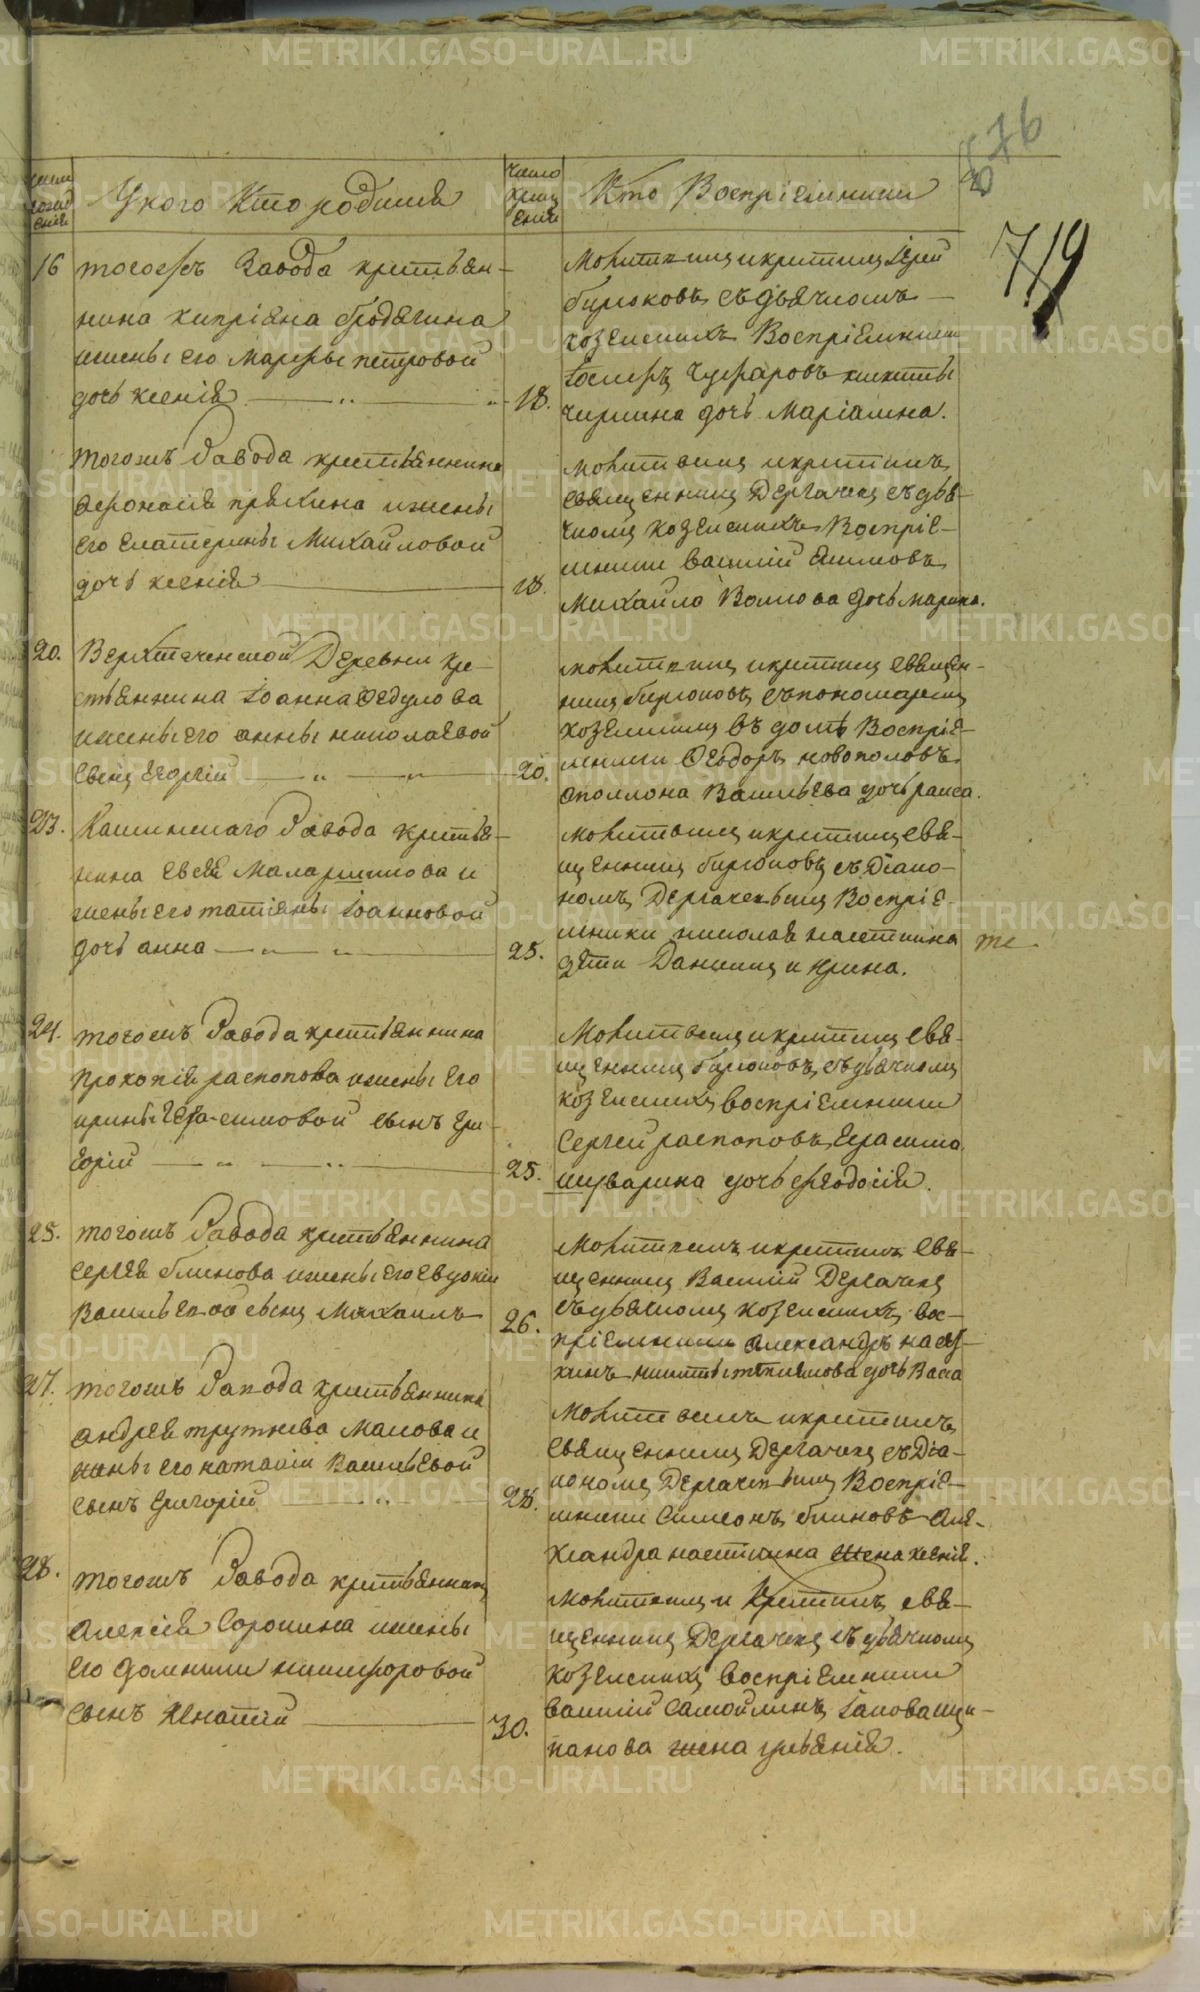 576
719
Число рождения
У кого Кто родился
Число Крещения
Кто Воспріемники
16
тогожъ Завода крестьян-
нина Кипріана Бродягина
и жены его Марфы петровой
дочь ксенія
18.
Молитвилъ и крестилъ Іерей
бирюковъ съ дьячкомъ
козельскихъ Воспріемники
Іосифъ Чуфаровъ никиты
дочь Маріамна.
тогожъ Завода крестьяннина
Афонасія пряхина и жены
его екатерины Михайловой
дочь ксенія
18.
молитвилъ и крестилъ
священникъ Дергачевъ съ дья-
чкомъ козельскихъ Воспріе-
мники василій Акимовъ
Михайло Волкова дочь марина.
20.
Верхтеченской Деревни кре-
стьяннина Іоанна Федулова
и жены его анны николаевой
сынъ Георгій
20.
молитвилъ и крестилъ священ-
никъ бирюковъ съ пономаремъ
козелскимъ въ домѣ Воспріе-
мники Феодоръ новополовъ
аполлона Васильева дочь раиса.
23.
Каслинскаго Завода крестья-
нина евсея Маларщикова и
жены его татіаны Іоанновой
дочь анна
25.
молитвилъ и крестилъ свя-
щенникъ бирюковъ съ Діако-
номъ Дергачевымъ Воспріе-
мники николая насткина
дѣти Даниилъ и ирина.
24.
тогожъ Завода крестьяннина
прокопія распопова и жены его
ирины Герасимовой сынъ Гри-
горій
25.
Молитвилъ и крестилъ свя-
щенникъ бирюковъ, съ дьячкомъ
козельскихъ воспріемники
Сергей распоповъ, Герасима
шуварина дочь феодосія.
25.
тогожъ Завода крестьяннина
сергея блинова и жены его евдокіи
Васильевой сынъ Михаилъ
26.
Молитвилъ и крестилъ свя-
щенникъ Василій Дергачевъ
съ дьячкомъ козельскихъ вос-
пріемники александръ
никиты дочь Васса
27.
тогожъ Завода крестьяннина
андрея трутнева Малова и
жены его наталіи Васильевой
сынъ Григорій
28.
Молитвилъ и крестилъ
священникъ Дергачевъ съ Діа-
кономъ Дергачевымъ Воспріе-
мники Симеонъ блиновъ Але-
ксандра насткина жена ксенія.
28.
тогожъ Завода крестьяннина
Алексія Сорокина и жены
его Домники никифоровой
сынъ Игнатій
30.
Молитвилъ и Крестилъ свя-
щенникъ Дергачевъ съ дьячкомъ
козельскихъ воспріемники
василій Самойлинъ, Іакова щи-
панова жена